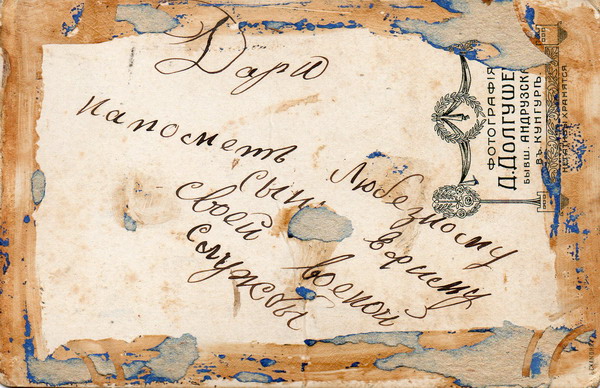 Дарю
напометь Любезному
сын
своей военой
службы
ФОТОГРАФІЯ
Д. ДОЛГУШЕ
БЫВШ. АНДРУЗСКА
ВЪ КУНГУРѢ.
ХРАНЯТСЯ